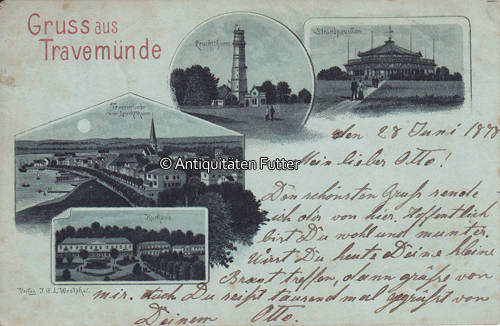 Gruss aus
Travemünde
Leuchtturm
Strandpavillon
Travemünde
vom Leuchtthurm
Kurhaus
Verlag J.G.L. Westphal
© Antiquitäten Futter
den 28 Juni 1898
Mein lieber Otto!
Den schönsten Gruß sende
ich dir von hier, Hoffentlich
bist Du wohl und munter.
Wirst Du heute Deine kleine
Braut treffen, dann grüße von
mir. Auch Du seist tausend mal gegrüßt von
Deinem Otto.